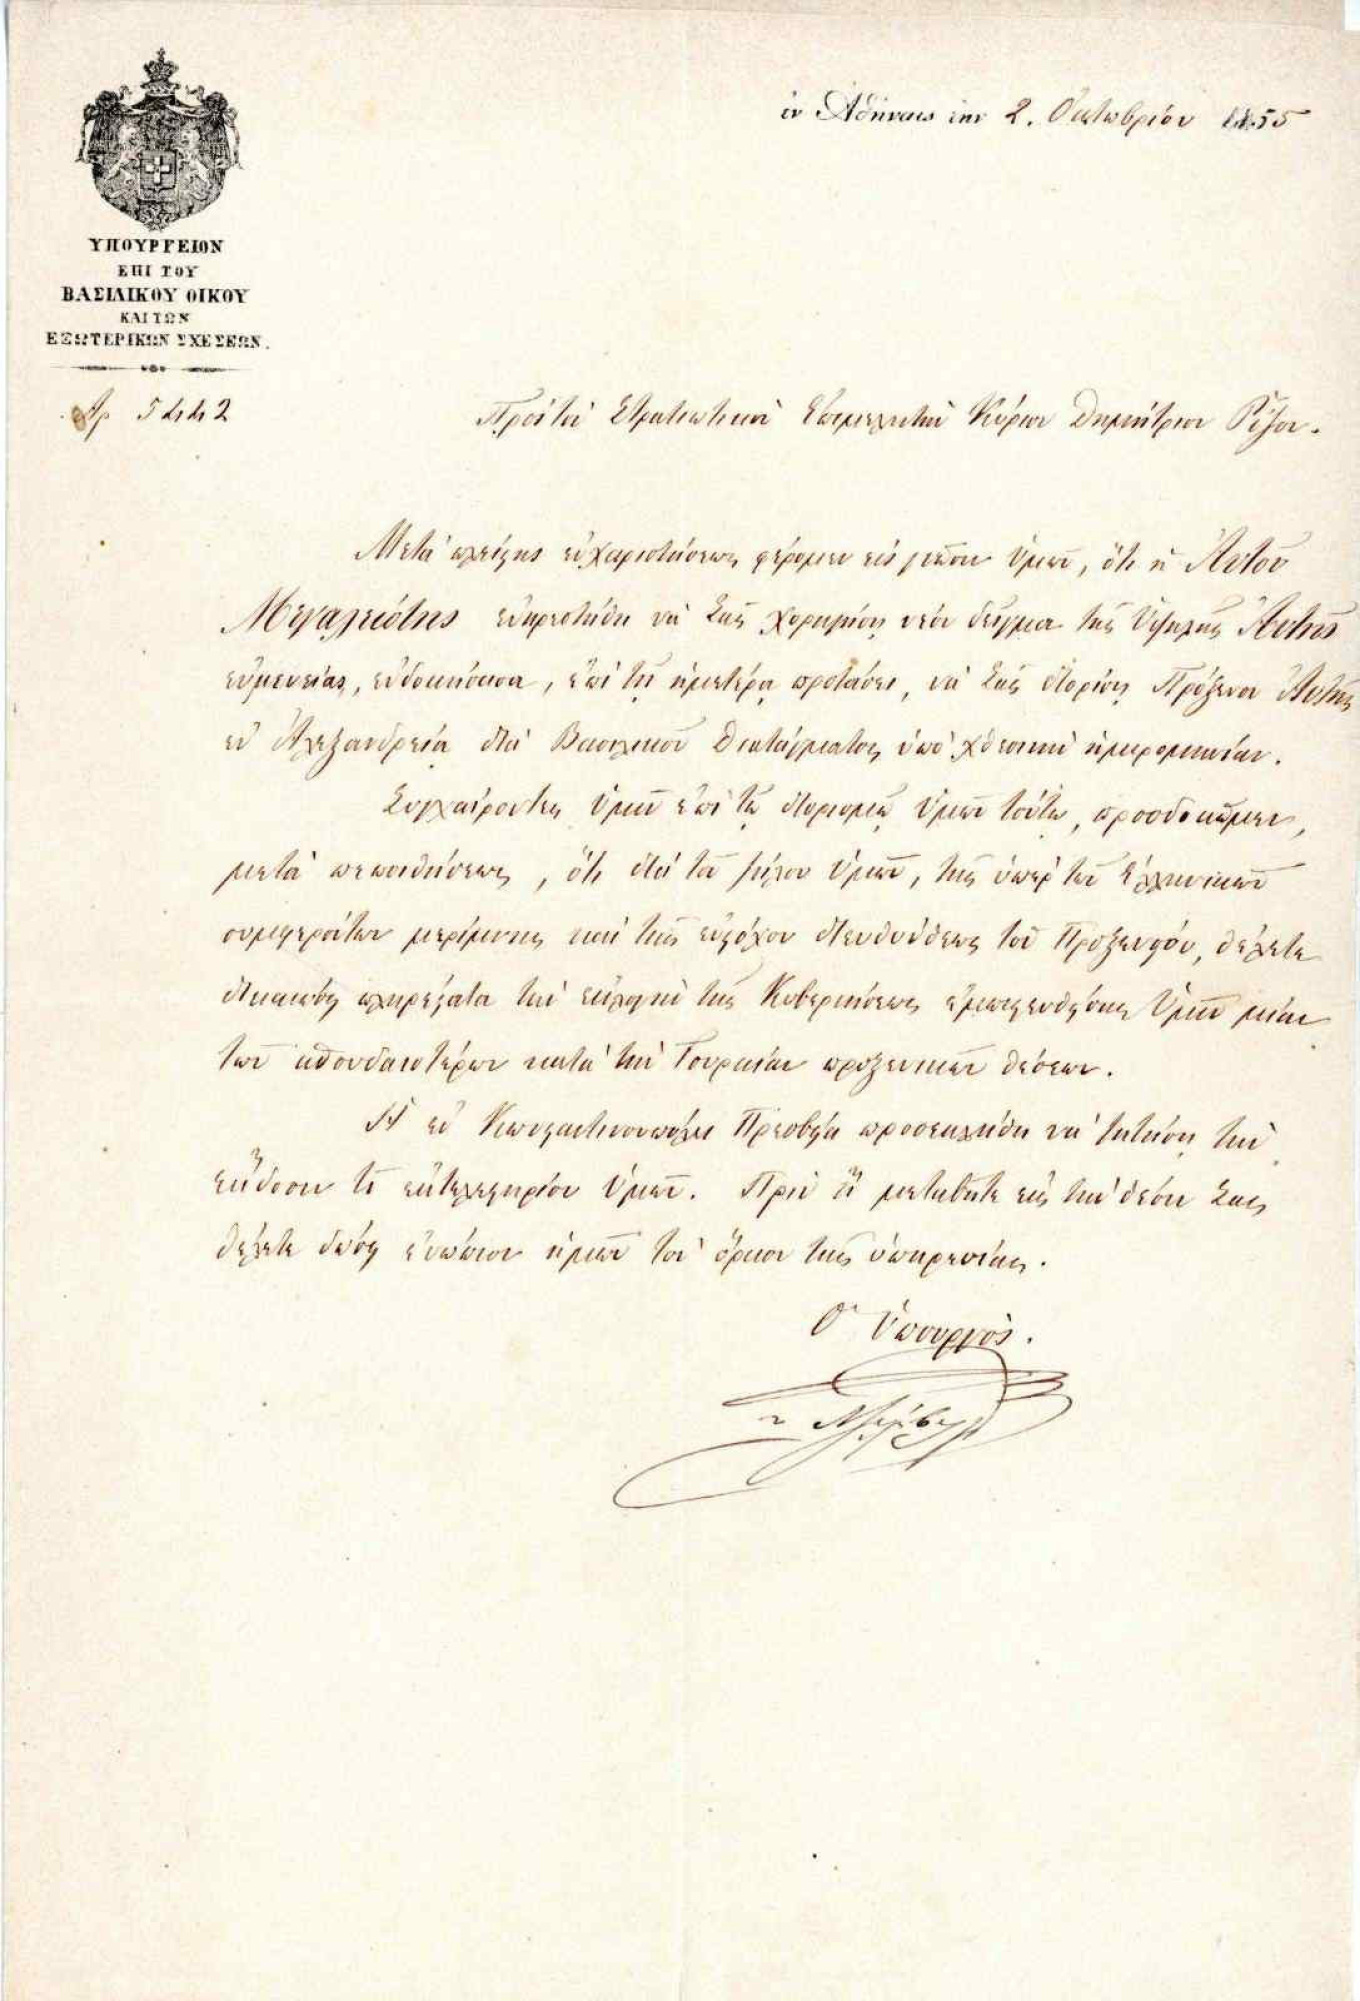 ἐν Ἀθήναις τὴν 2. Ὀκτωβρίου 1855
ΥΠΟΥΡΓΕΙΟΝ
ΕΠΙ ΤΟΥ
ΒΑΣΙΛΙΚΟΥ ΟΙΚΟΥ
ΚΑΙ ΤΩΝ
ΕΞΩΤΕΡΙΚΩΝ ΣΧΕΣΕΩΝ.
Πρὸς τὸν Στρατιωτικὸν Ἐπιμελητὴν Κύριον Δημήτριον Ῥίζον.
Μετὰ πλείστης εὐχαριστήσεως φέρομεν εἰς γνῶσιν Ὑμῶν, ὅτι ἡ Αὐτοῦ
Μεγαλειότης εὐηρεστήθη νὰ Σᾶς χορηγήσῃ νέον δεῖγμα τῆς Ὑψηλῆς Αὐτῆς
εὐμενείας, εὐδοκήσασα, ἐπὶ τῇ ἡμετέρᾳ προτάσει, νὰ Σᾶς διορίσῃ Πρόξενον Αὐτῆς
ἐν Ἀλεξανδρείᾳ διὰ Βασιλικοῦ Διατάγματος ὑπὸ χθεσινὴν ἡμερομηνίαν.
Συγχαίροντες Ὑμῖν ἐπὶ τῷ διορισμῷ Ὑμῶν τούτῳ, προσδοκῶμεν,
μετὰ πεποιθήσεως, ὅτι διὰ τοῦ ζήλου Ὑμῶν, τῆς ὑπὲρ τῶν Ἑλληνικῶν
συμφερόντων μερίμνης καὶ τῆς εὐστόχου διευθύνσεως τοῦ Προξενείου, θέλετε
δικαιώσῃ πληρέστατα τὴν ἐκλογὴν τῆς Κυβερνήσεως ἐμπιστευθείσης Ὑμῖν μίαν
τῶν σπουδαιοτέρων κατὰ τὴν Τουρκίαν προξενικῶν θέσεων.
Ἡ ἐν Κωνσταντινουπόλει Πρεσβεία προσεκλήθη νὰ ζητήσῃ τὴν
ἔκδοσιν τοῦ ἐκτελεστηρίου Ὑμῶν. Πρὶν ἢ μεταβῆτε εἰς τὴν θέσιν Σας
θέλετε δώσῃ ἐνώπιον ἡμῶν τὸν ὅρκον τῆς ὑπηρεσίας.
Ὁ Ὑπουργὸς.